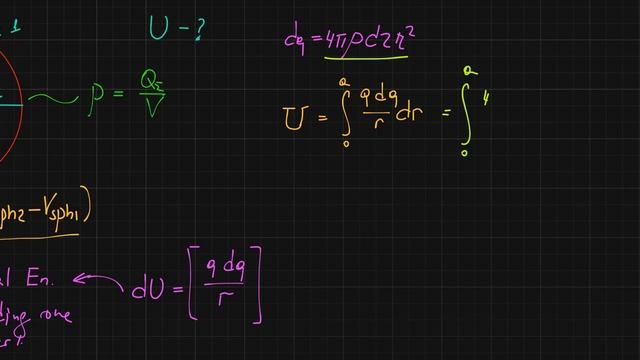 1
U - ?
dq = 4πρdzr²
ρ = Q_Σ / V
U = ∫₀ᵃ (q dq / r) dr = ∫₀ᵃ 4
ph2 - V sph1)
al En.
dU = [q dq / r]
ding one